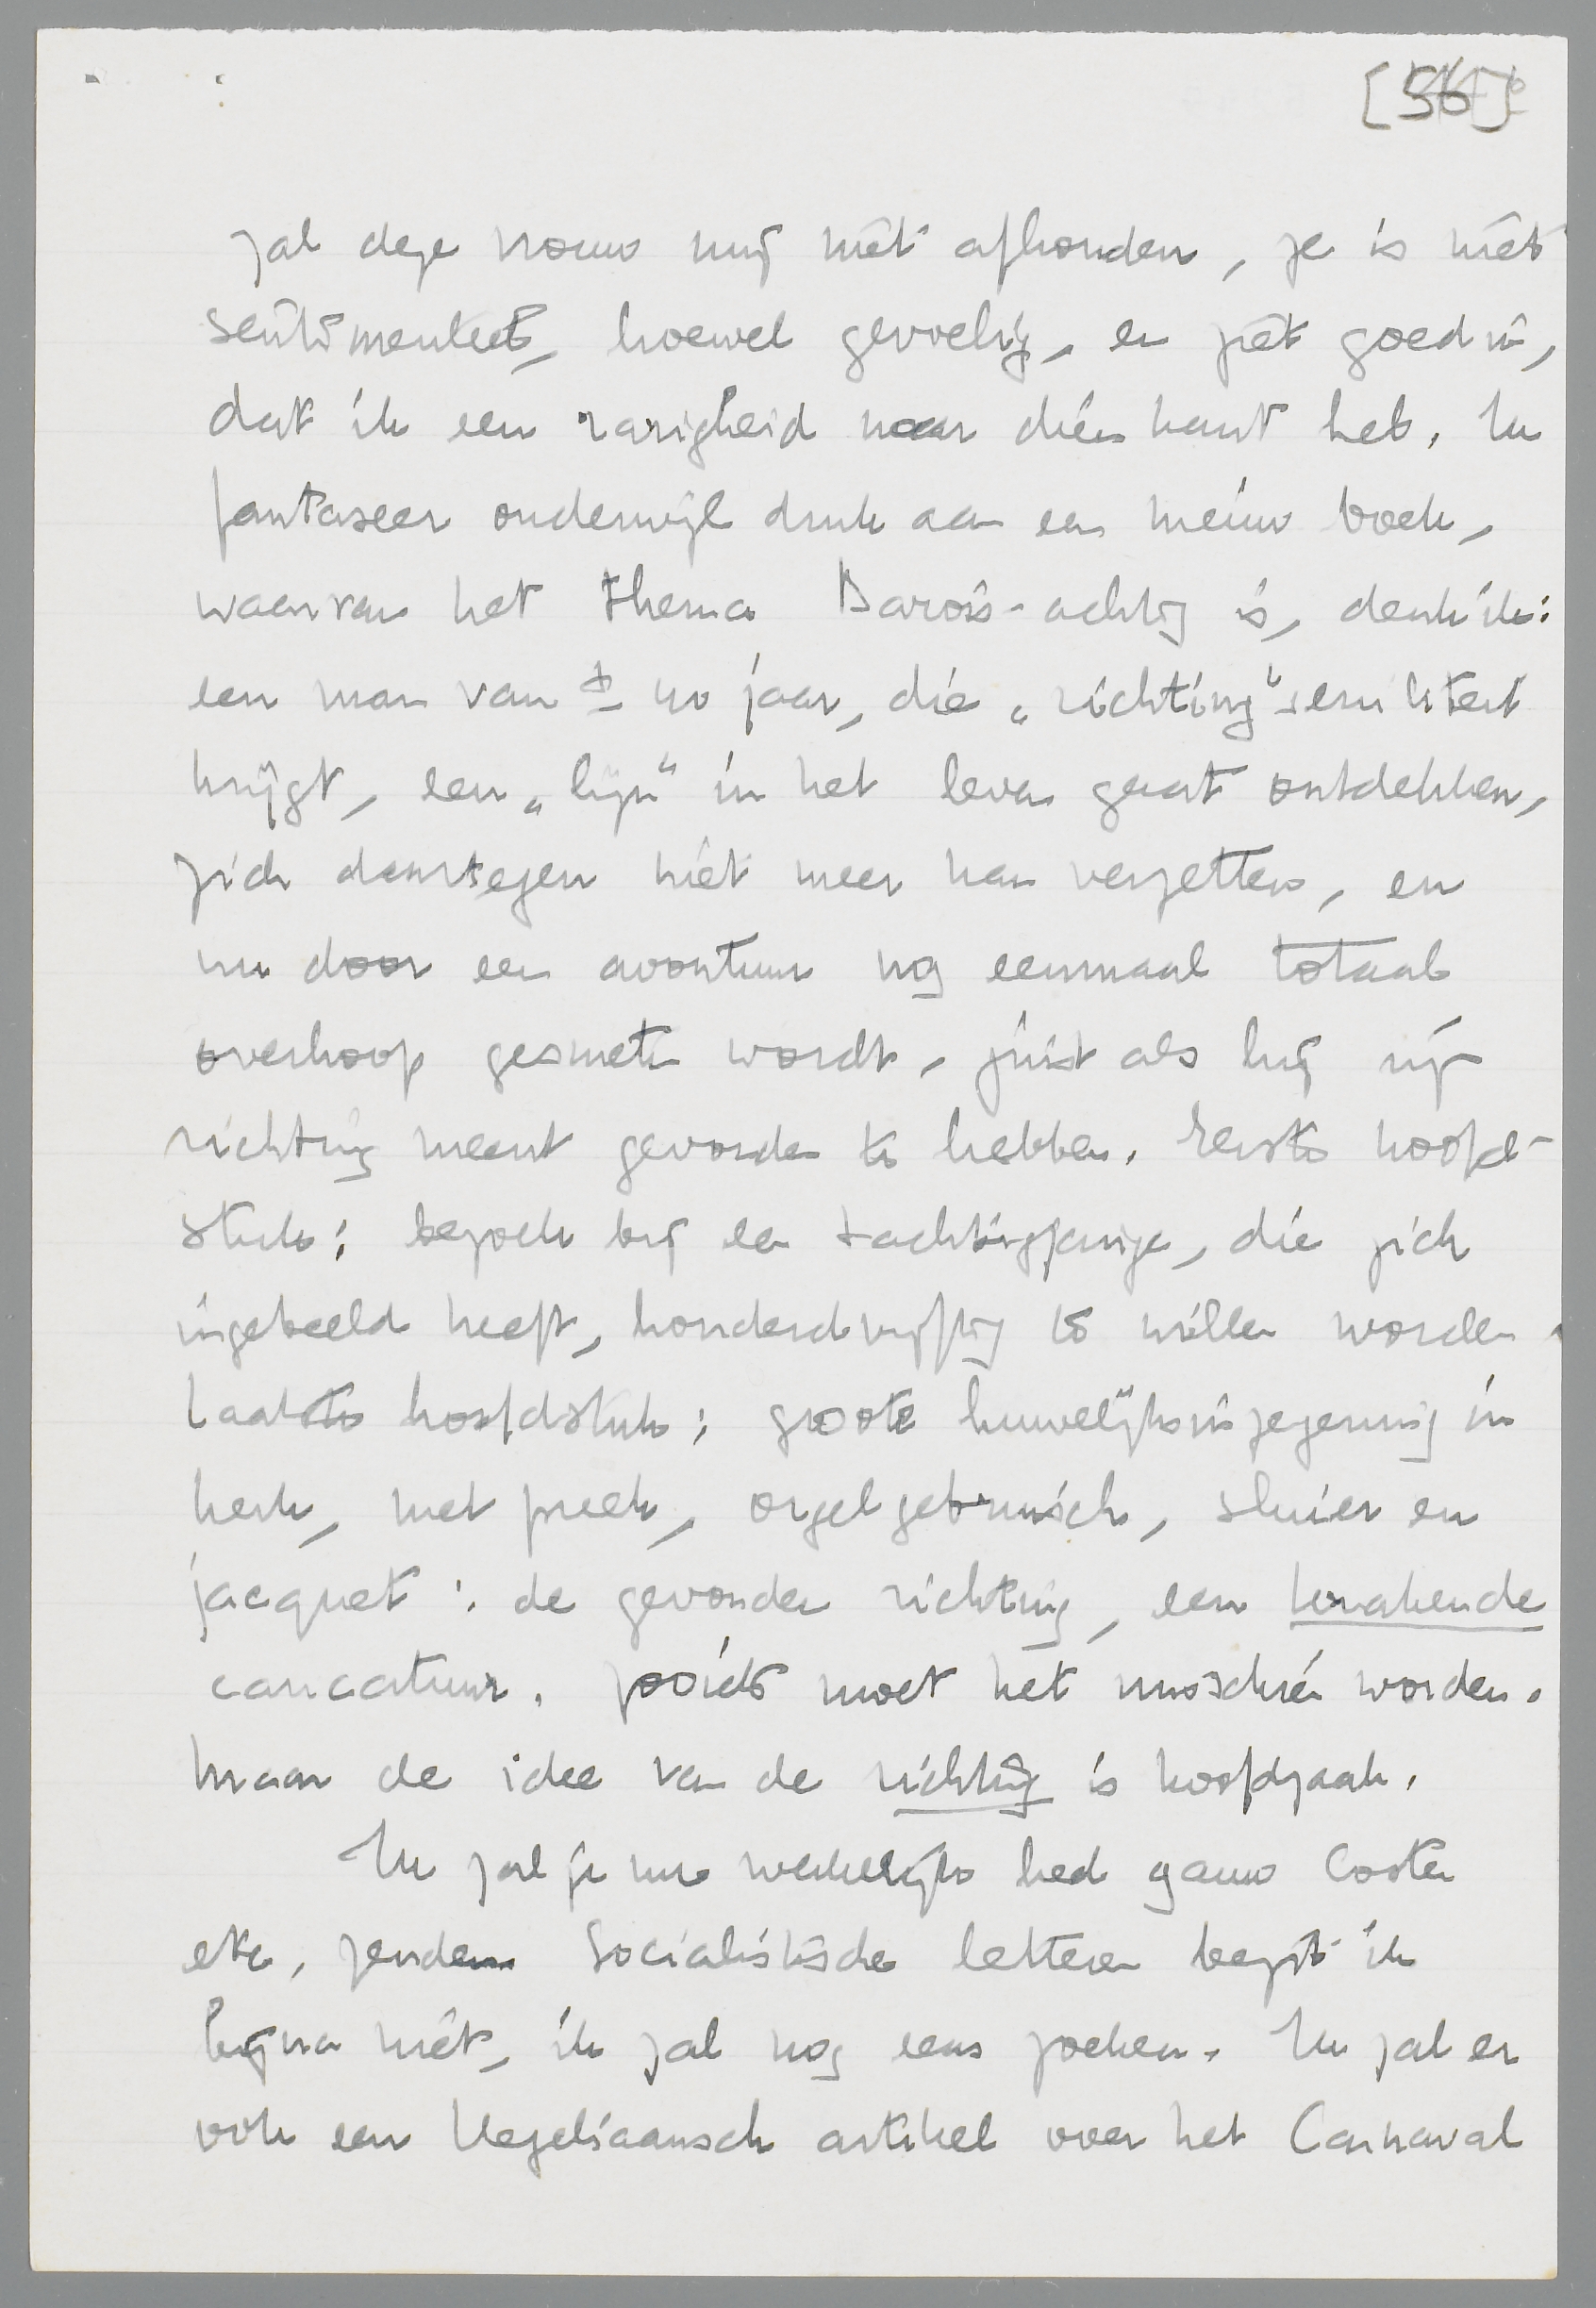 [56]
zal deze vrouw mij niet afhouden, ze is niet
sentimenteel, hoewel gevoelig, en ziet goed in,
dat ik een razigheid naar dien kant heb. Ik
fantaseer onderwijl druk aan een nieuw boek,
waarvan het thema Barois-achtig is, denk ik:
een man van ± 40 jaar, die „richting"
krijgt, een „lijn" in het leven gaat ontdekken,
zich daartegen niet meer kan verzetten, en
nu door een avontuur nog eenmaal totaal
overhoop gesmeten wordt, juist als hij zijn
richting meent gevonden te hebben. Eerste hoofd-
stuk: bezoek bij een tachtigjarige, die zich
ingebeeld heeft, honderdvijftig te willen worden.
Laatste hoofdstuk: groote huwelijksinzegening in
kerk, met preek, orgelgebruisch, sluier en
jacquet: de gevonden richting, een krakende
caricatuur. Zooiets moet het misschien worden.
Maar de idee van de richting is hoofdzaak.
Ik zal je nu werkelijk heel gauw Coster
etc. zenden. Socialistische letteren bezit ik
bijna niet, ik zal nog eens zoeken. Ik zal er
ook een Hegeliaansch artikel over het Carnaval